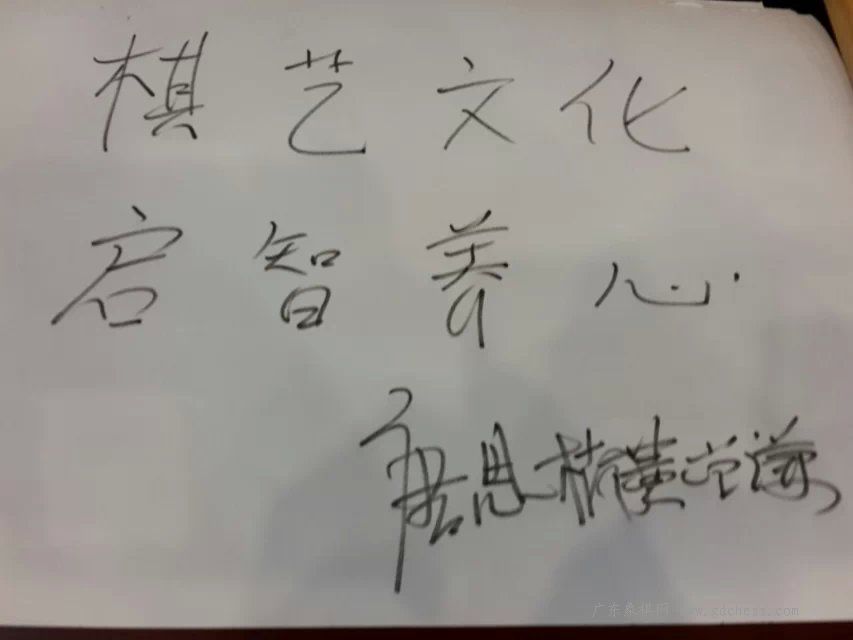 棋艺文化
启智养心
广东象棋网 www.gdchess.com